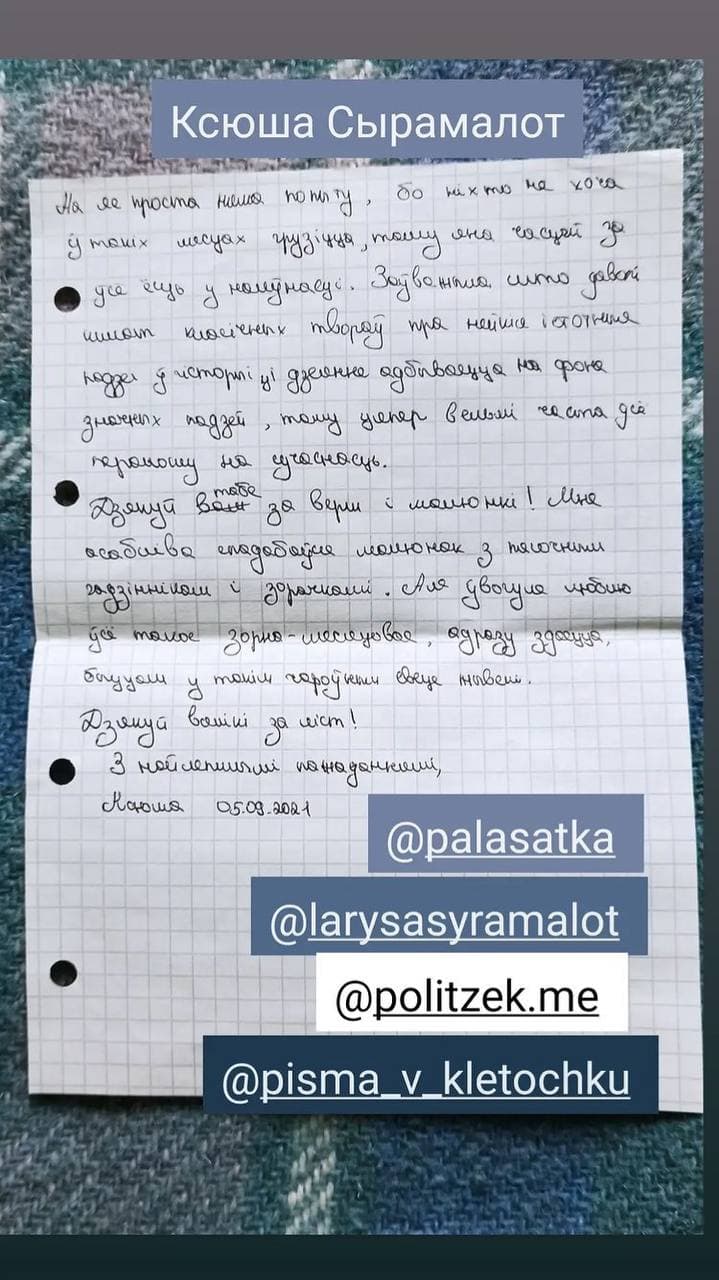 Ксюша Сырамалот
На яе проста няма попыту, бо ніхто не хоча
ў такіх месцах грузіцца, таму яна часцей за
усё ёсць у наяўнасці. Заўважыла, што даволі
шмат класічных твораў пра нейкія істотныя
падзеі ў гісторыі ці дзеянне адбываецца на фоне
значных падзей, таму цяпер вельмі часта ўсё
пераношу на сучаснасць.
Дзякуй вам табе за верш і малюнкі! Мне
асабліва спадабаўся малюнак з пясочным
гадзіннікам і зорачкамі. Але увогуле люблю
ўсё такое зорна-месяцовае, адразу здаецца,
быццам у такім чароўным свеце жывеш.
Дзякуй вялікі за ліст!
З найлепшымі пажаданнямі,
Ксюша 05.09.2021
@palasatka
@larysasyramalot
@politzek.me
@pisma_v_kletochku